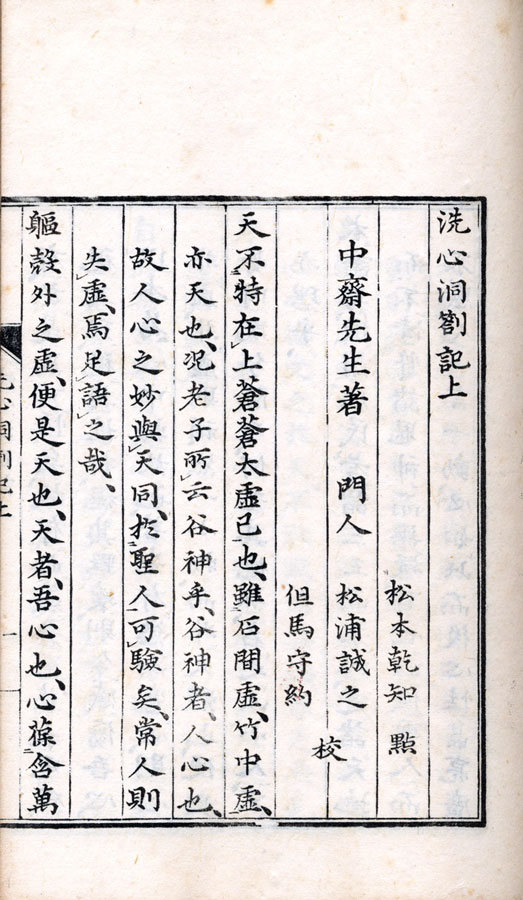 洗心洞劄記上
松本乾知 點
中齋先生著 門人 松浦誠之
但馬守約 校
天不特在上蒼蒼太虛已也、雖石間虛、竹中虛、
亦天也、况老子所云谷神乎、谷神者、人心也、
故人心之妙與天同、於聖人可驗矣、常人則
失虛、焉足語之哉、
軀殼外之虛、便是天也、天者、吾心也、心葆含萬
洗心洞劄記上
一